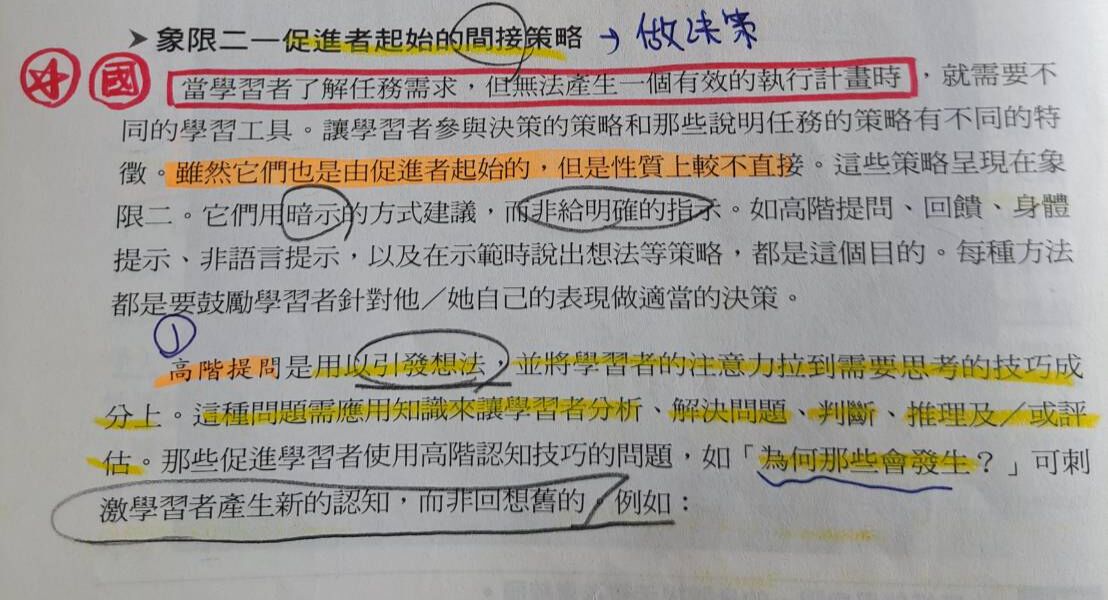 ➤ 象限二—促進者起始的間接策略 → 做決策
國 當學習者了解任務需求，但無法產生一個有效的執行計畫時，就需要不
同的學習工具。讓學習者參與決策的策略和那些說明任務的策略有不同的特
徵。雖然它們也是由促進者起始的，但是性質上較不直接。這些策略呈現在象
限二。它們用暗示的方式建議，而非給明確的指示。如高階提問、回饋、身體
提示、非語言提示，以及在示範時說出想法等策略，都是這個目的。每種方法
都是要鼓勵學習者針對他／她自己的表現做適當的決策。
1
高階提問是用以引發想法，並將學習者的注意力拉到需要思考的技巧成
分上。這種問題需應用知識來讓學習者分析、解決問題、判斷、推理及／或評
估。那些促進學習者使用高階認知技巧的問題，如「為何那些會發生？」可刺
激學習者產生新的認知，而非回想舊的。例如：